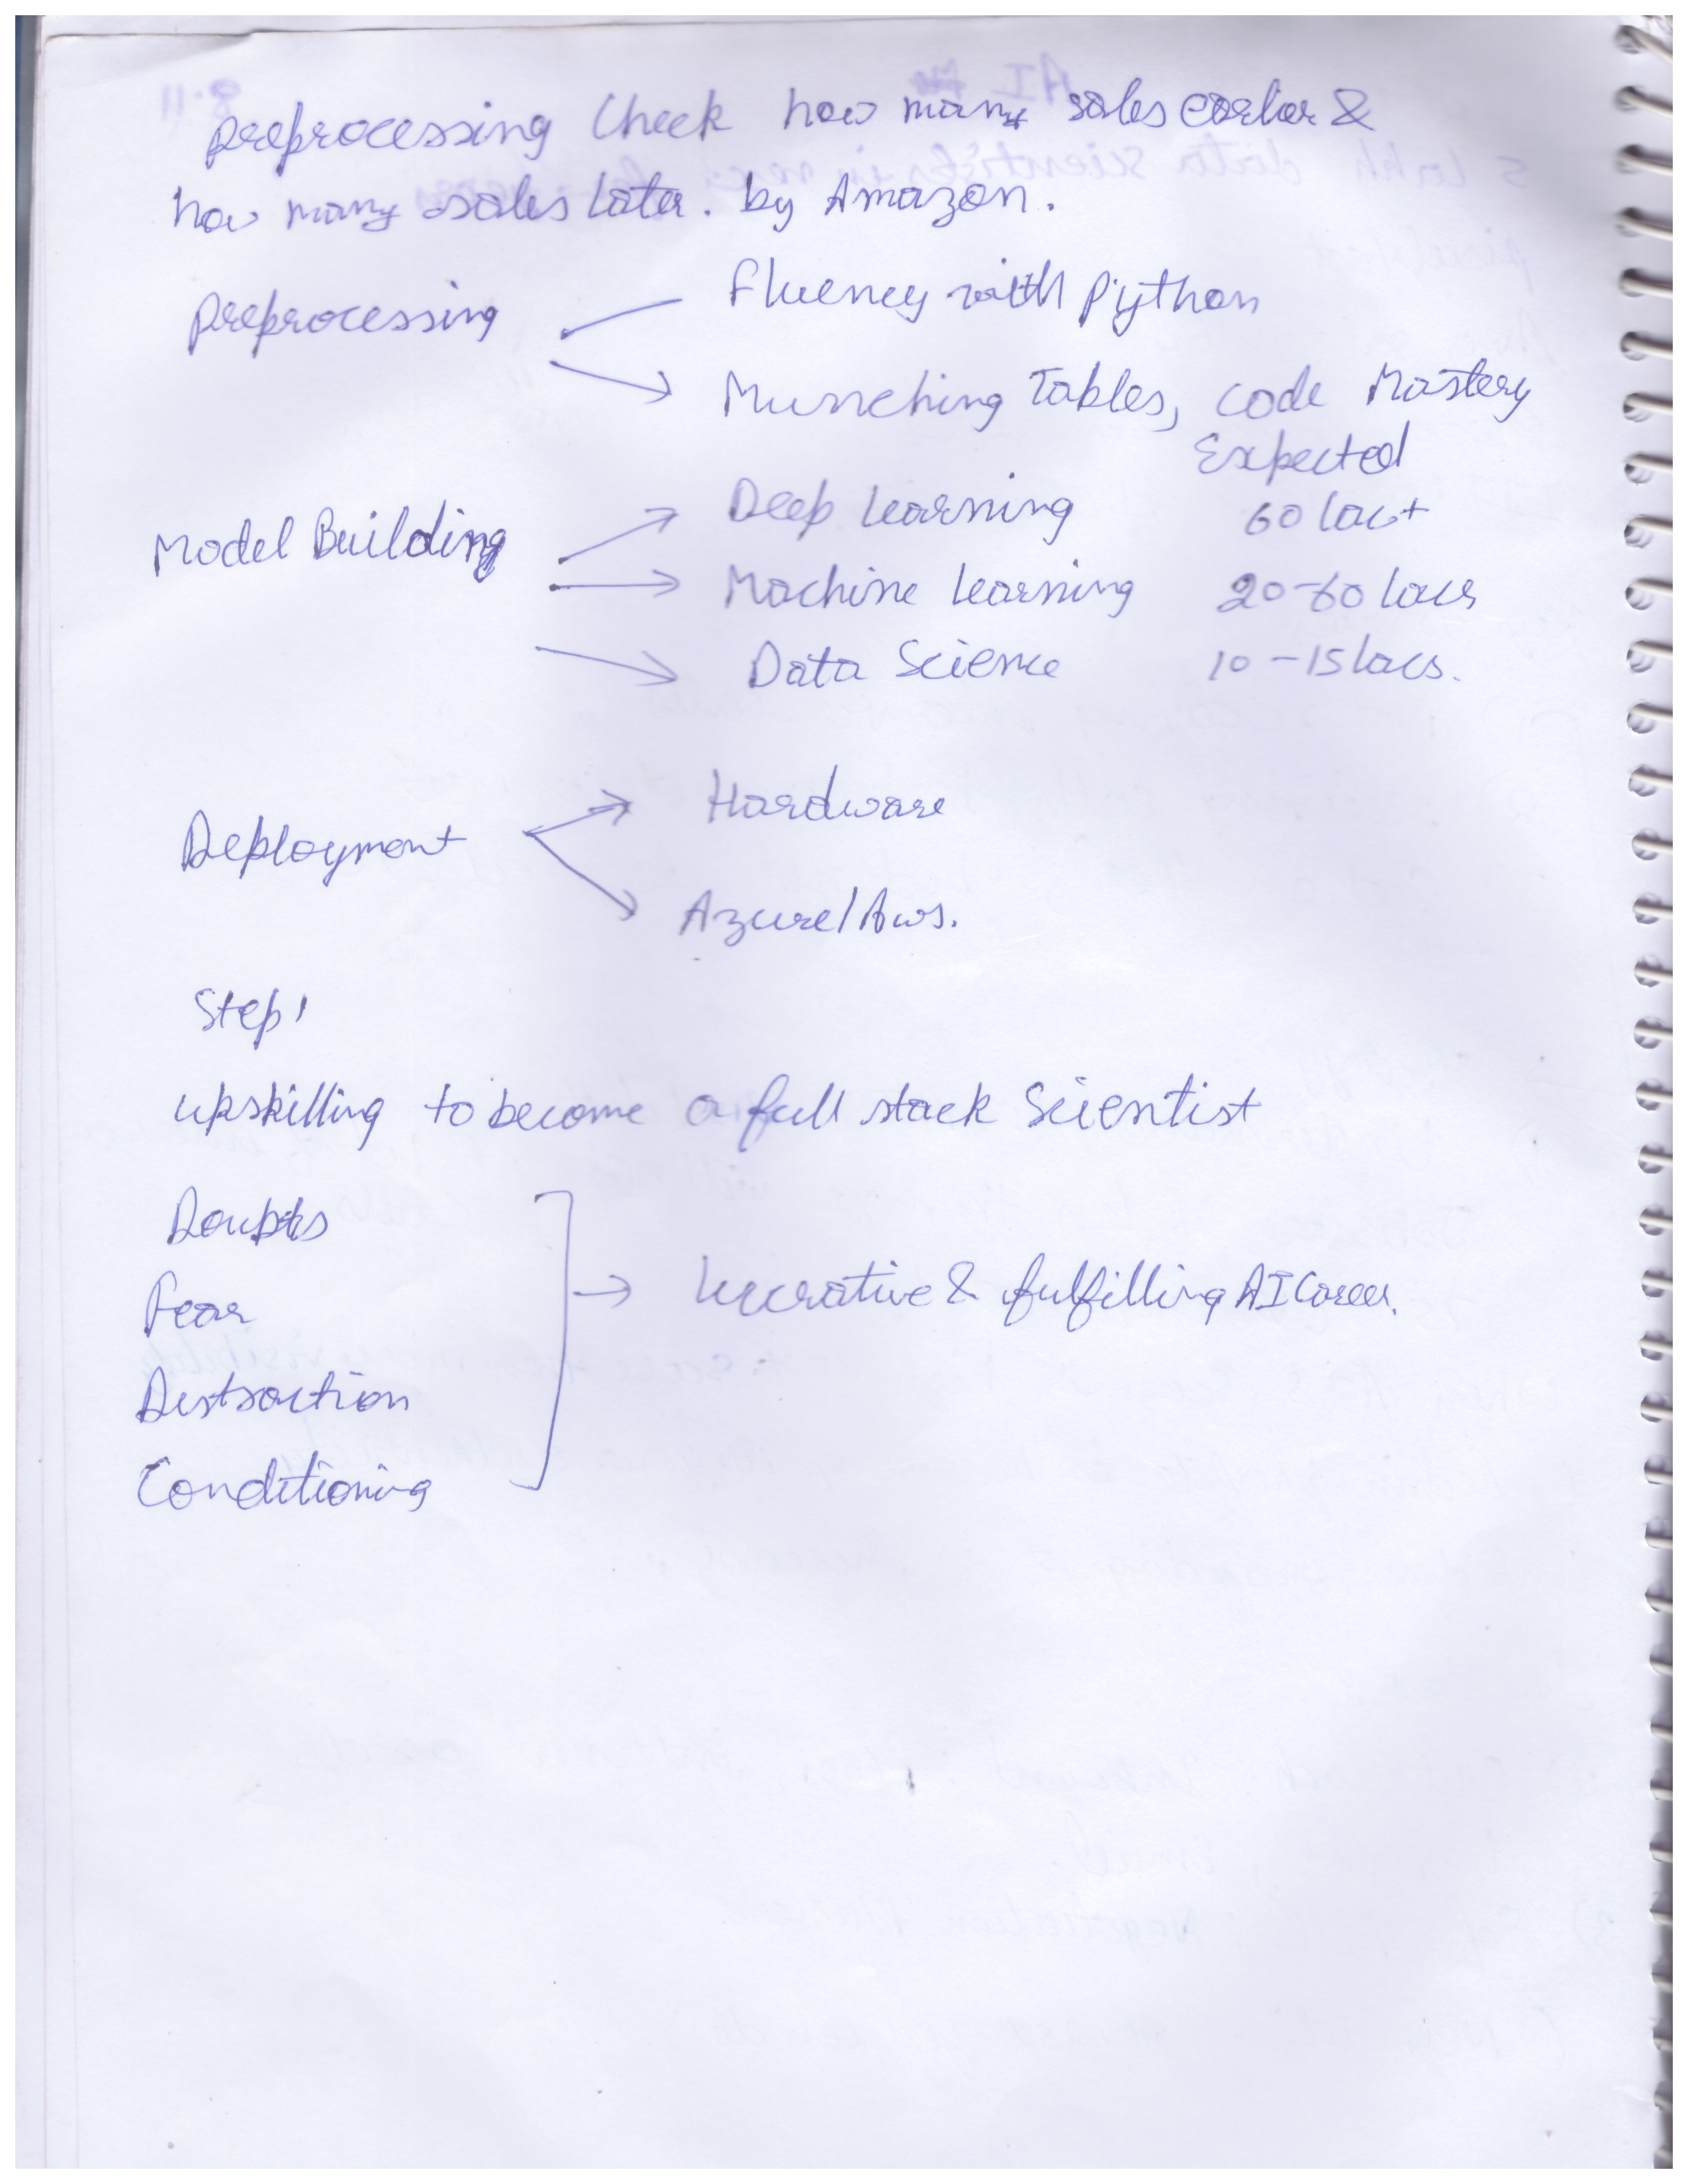 preprocessing Check how many sales earlier &
how many sales later. by Amazon.
Preprocessing
Fluency with Python
Munching Tables, code Mastery
Expected
Model Building
Deep Learning 60 lac+
Machine Learning 20-60 lacs
Data Science 10-15 lacs.
Deployment
Hardware
Azure/Aws.
Step 1
upskilling to become a full stack Scientist
Doubts
Fear
Distraction
Conditioning
Lucrative & fulfilling AI Career.